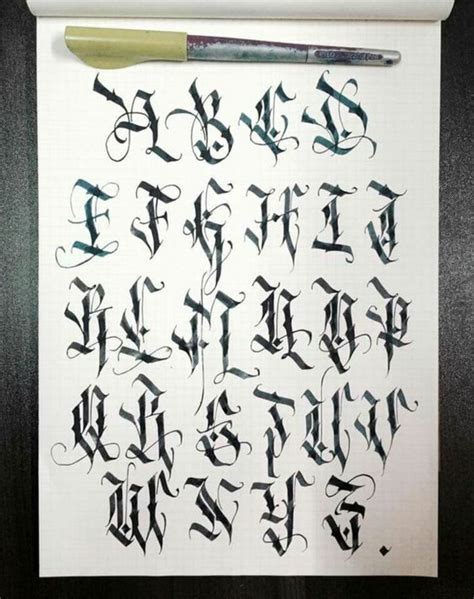 A B C D
E F G H I J
K L M N O P
Q R S T U V
W X Y Z.